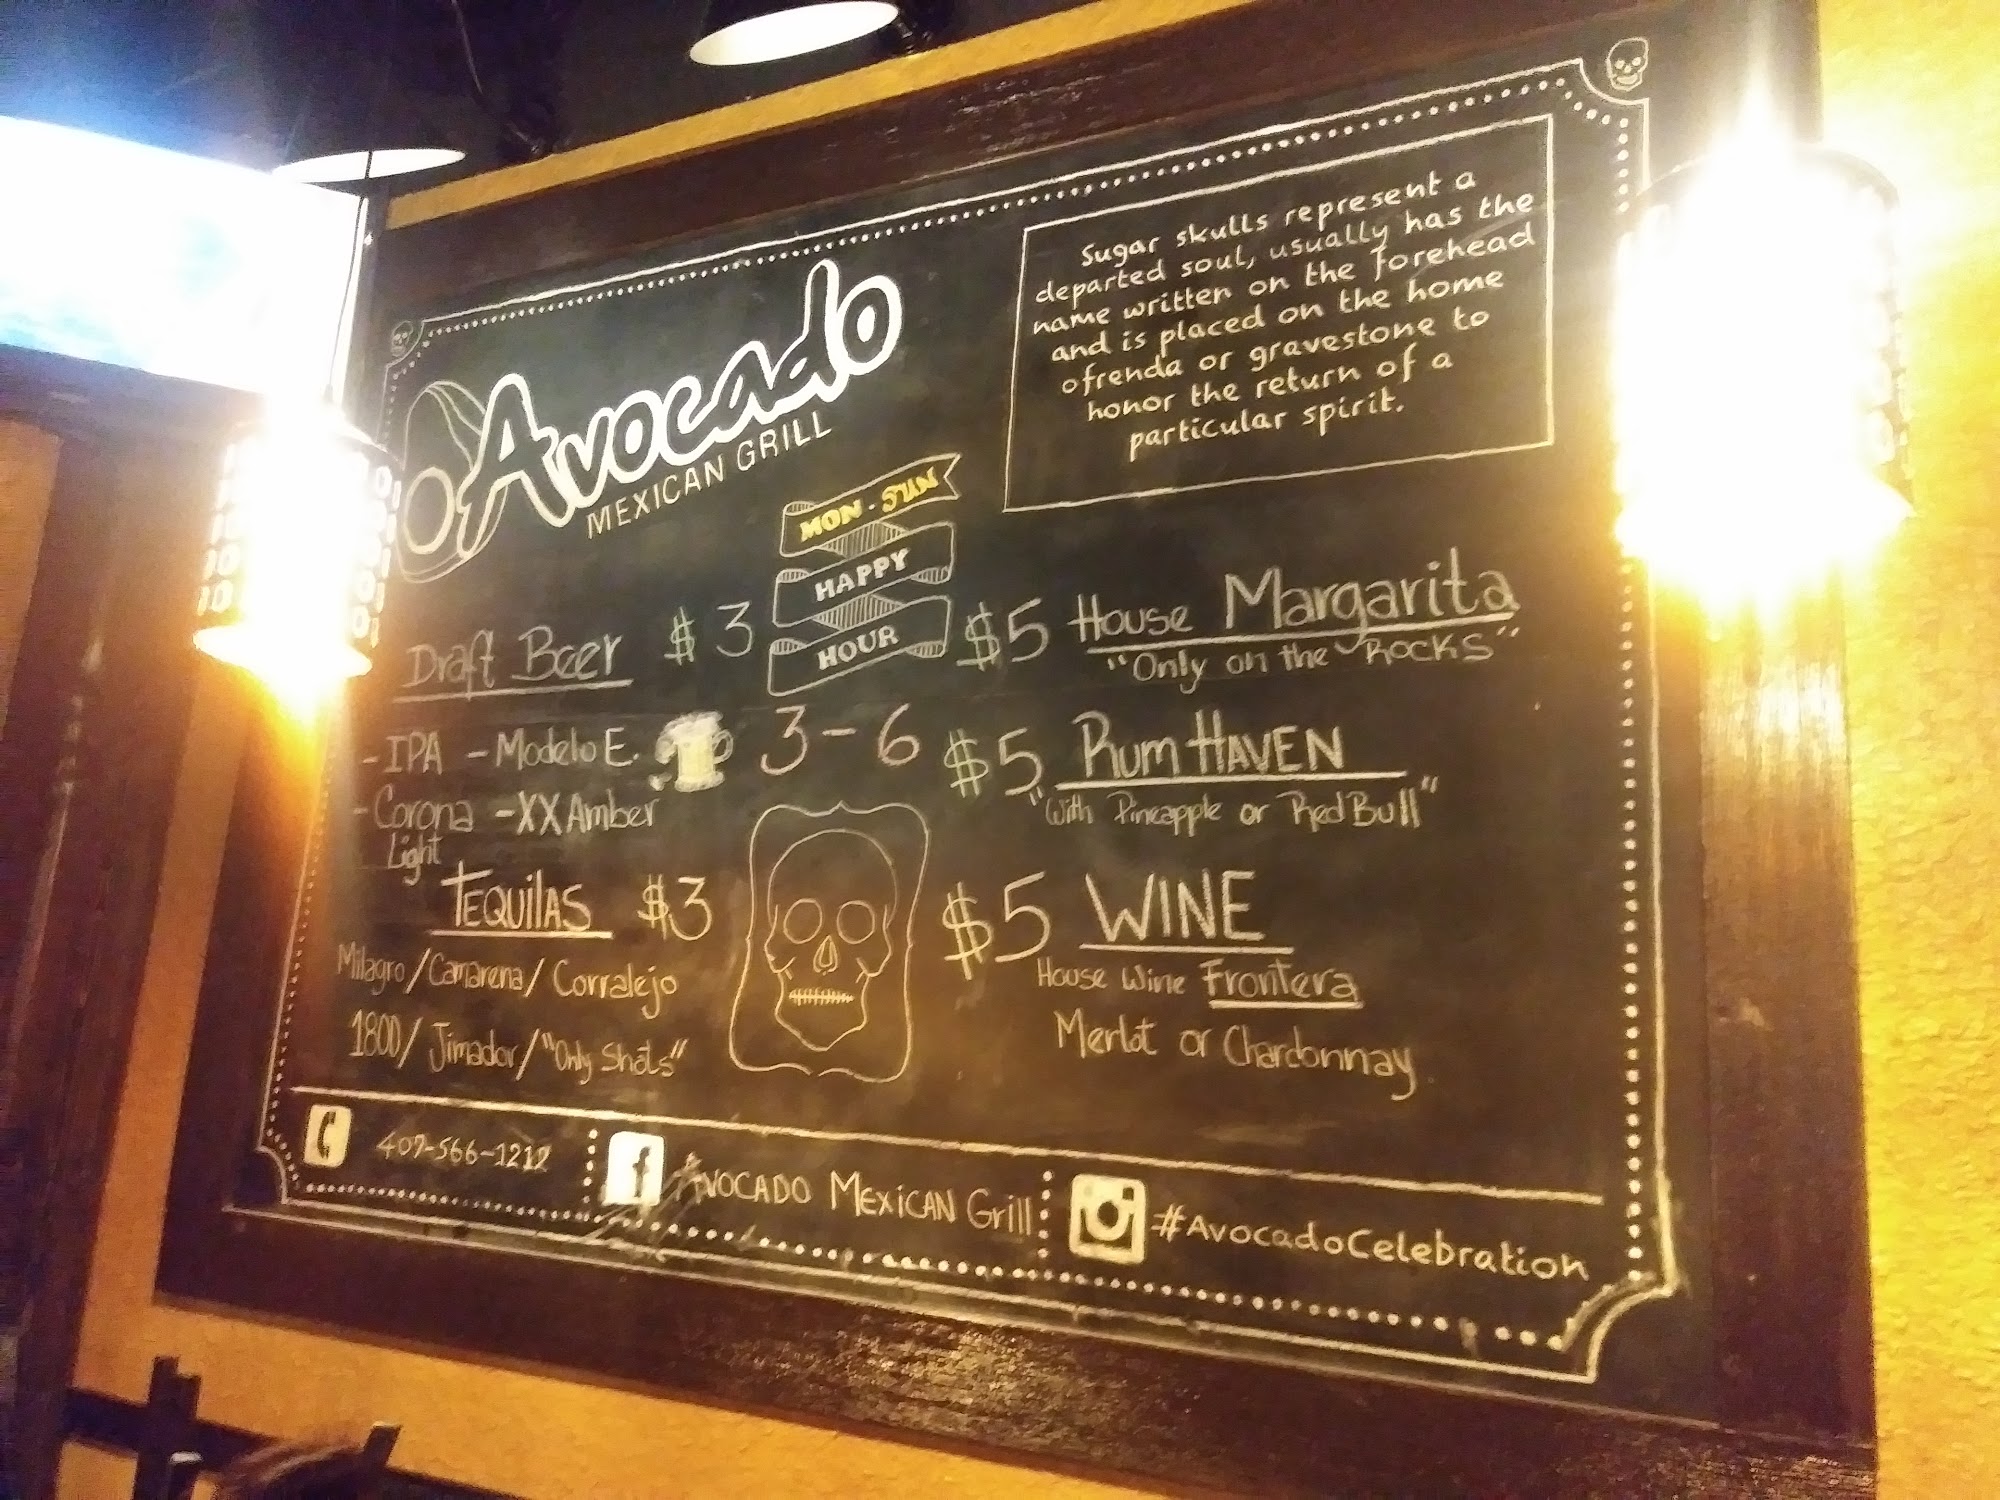 Avocado
MEXICAN GRILL
Sugar skulls represent a
departed soul, usually has the
name written on the forehead
and is placed on the home
ofrenda or gravestone to
honor the return of a
particular spirit.
MON-SUN
HAPPY
HOUR
3-6
Draft Beer $3
-IPA -Modelo E.
-Corona -XX Amber
Light
TEQUILAS $3
Milagro/Camarena/Corralejo
1800/Jimador/"Only Shots"
$5 House Margarita
"Only on the Rocks"
$5 Rum HAVEN
"With Pineapple or Red Bull"
$5 WINE
House Wine Frontera
Merlot or Chardonnay
407-566-1212
f AVOCADO MEXICAN Grill
#AvocadoCelebration